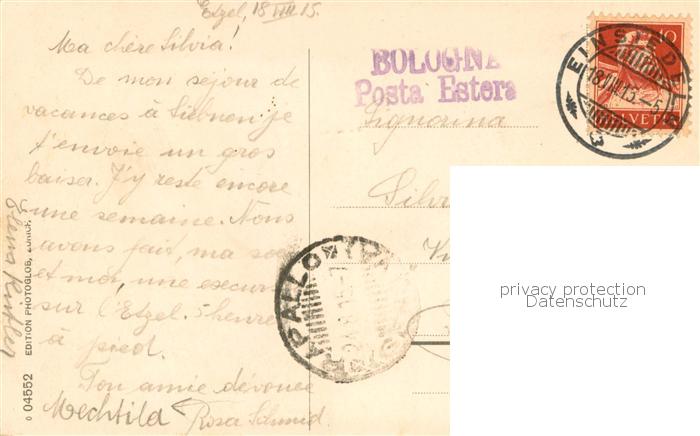 Etzel, 18 VIII 15.
Ma chère Silvia!
De mon séjour de
vacances à Siebnen je
t'envoie un gros
baiser. J'y reste encore
une semaine. Nous
avons fait, ma
et moi, une
sur l'Etzel. 5 heures
à pied.
Ton amie dévouée
Rosa Schmid.
Mechtila
EDITION PHOTOGLOB, ZÜRICH.
0 04552
BOLOGNE
Posta Estera
Signorina
EINSIEDELN
18.VIII.15.-5
10
HELVETIA
RAPALLO
privacy protection
Datenschutz